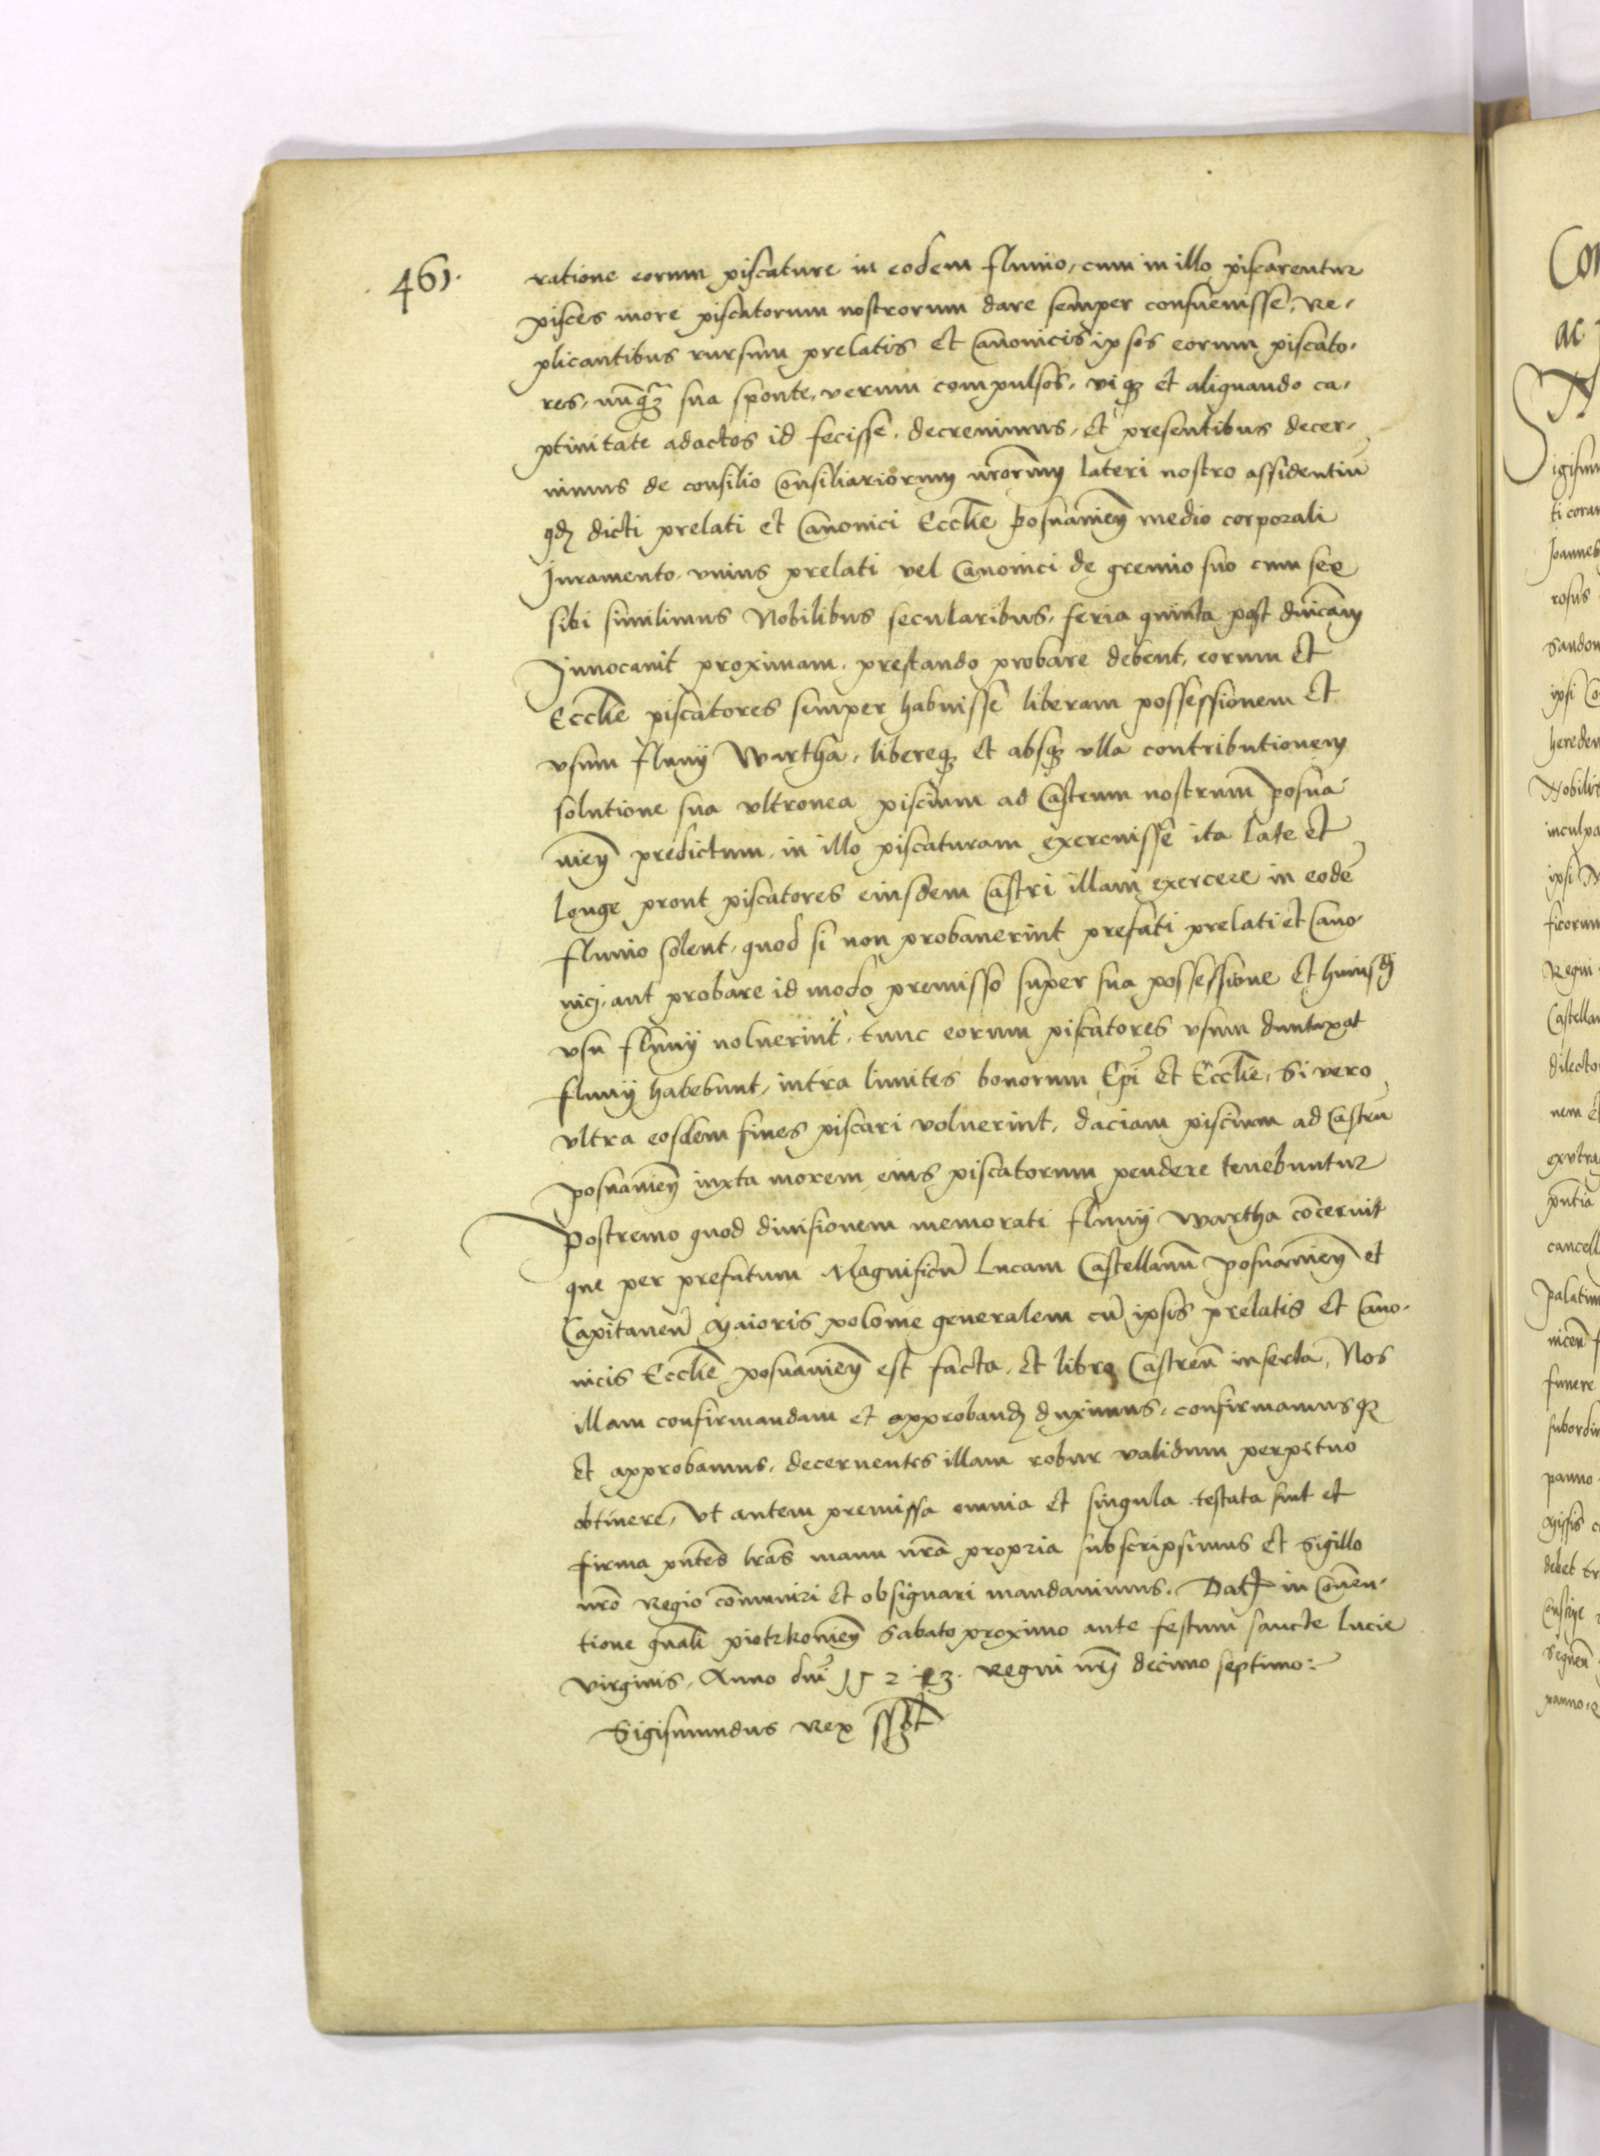 461.
ratione eorum piscature in eodem fluuio, cum in illo piscarentur
pisces more piscatorum nostrorum dare semper consueuisse, Re-
plicantibus rursum prelatis et Canonicis ipsos eorum piscato-
res, nūq̄ꝫ sua sponte, verum compulsos, viqꝫ et aliquando ca-
ptiuitate adactos id fecisse, decreuimus, et presentibus decer-
nimus de consilio Consiliariorum nrorum lateri nostro assidentiū
qd dicti prelati et Canonici Ecclie posnanien medio corporali
Juramento, vnius prelati vel Canonici de gremio suo cum sex
sibi similimus Nobilibus secularibus, feria quinta post dnicam
Inuocauit proximam, prestando probare debent, eorum et
Ecclie piscatores semper habuisse liberam possessionem et
vsum fluuij Wartha, libereqꝫ et absqꝫ vlla contributionem
solutione sua vltronea piscium ad Castrum nostrum posna-
nien predictum, in illo piscaturam exercuisse ita late et
longe prout piscatores eiusdem Castri illam exercere in eodē
fluuio solent, quod si non probauerint prefati prelati et Cano-
nici, aut probare id modo premisso super sua possessione et huiusd
vsu fluuij noluerint, tunc eorum piscatores vsum duntaxat
fluuij habebunt, intra limites bonorum Epi et Ecclie, Si vero
vltra eosdem fines piscari voluerint, daciam piscium ad Castrū
posnanien iuxta morem eius piscatorum pendere tenebuntur
Postremo quod diuisionem memorati fluuij Wartha cōcernit
que per prefatum Magnificū Lucam Castellanū posnanien et
Capitaneū Maioris polonie generalem cū ipsis prelatis et Cano-
nicis Ecclie posnanien est facta, et libro Castreñ inserta, Nos
illam confirmandam et approband duximus, confirmamusqꝫ
et approbamus, decernentes illam robur validum perpetuo
obtinere, Vt autem premissa omnia et singula testata sint et
firma pntes lras manu nra propria subscripsimus et Sigillo
nro Regio cōmuniri et obsignari mandauimus. Dat in Conuen-
tione gnali piotrkouien Sabato proximo ante festum sancte Lucie
virginis, Anno dni 1523. Regni nri decimo septimo:
Sigismundus Rex sst